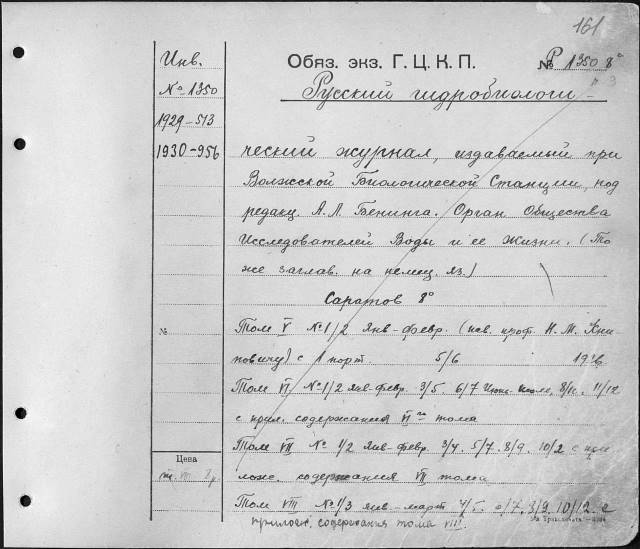 161
Инв.
№ 1350
1929-513
1930-956
Обяз. экз. Г. Ц. К. П. № Р 1350 8°
Русский гидробиологи-
ческий журнал, издаваемый при
Волжской Биологической Станции, под
редакц. А. Л. Бенинга. Орган Общества
Исследователей Воды и ее Жизни. (То
же заглав. на немец. яз.)
Саратов 8°
№
Том V № 1/2 Янв-февр. (посв. проф. Н. М. Кни-
повичу) с 1 порт. 5/6 1926
Том VI № 1/2 Янв-февр. 3/5, 6/7 8/10. 11/12
с прил. содержания VI го тома
Том VII № 1/2 Янв-февр. 3/4, 5/7, 8/9, 10/2 с при
лож. содержания VII тома
Цена
Том VIII № 1/3 янв-март 4/5. 6/7, 8/9, 10/12. с
прилож. содержания тома VIII.